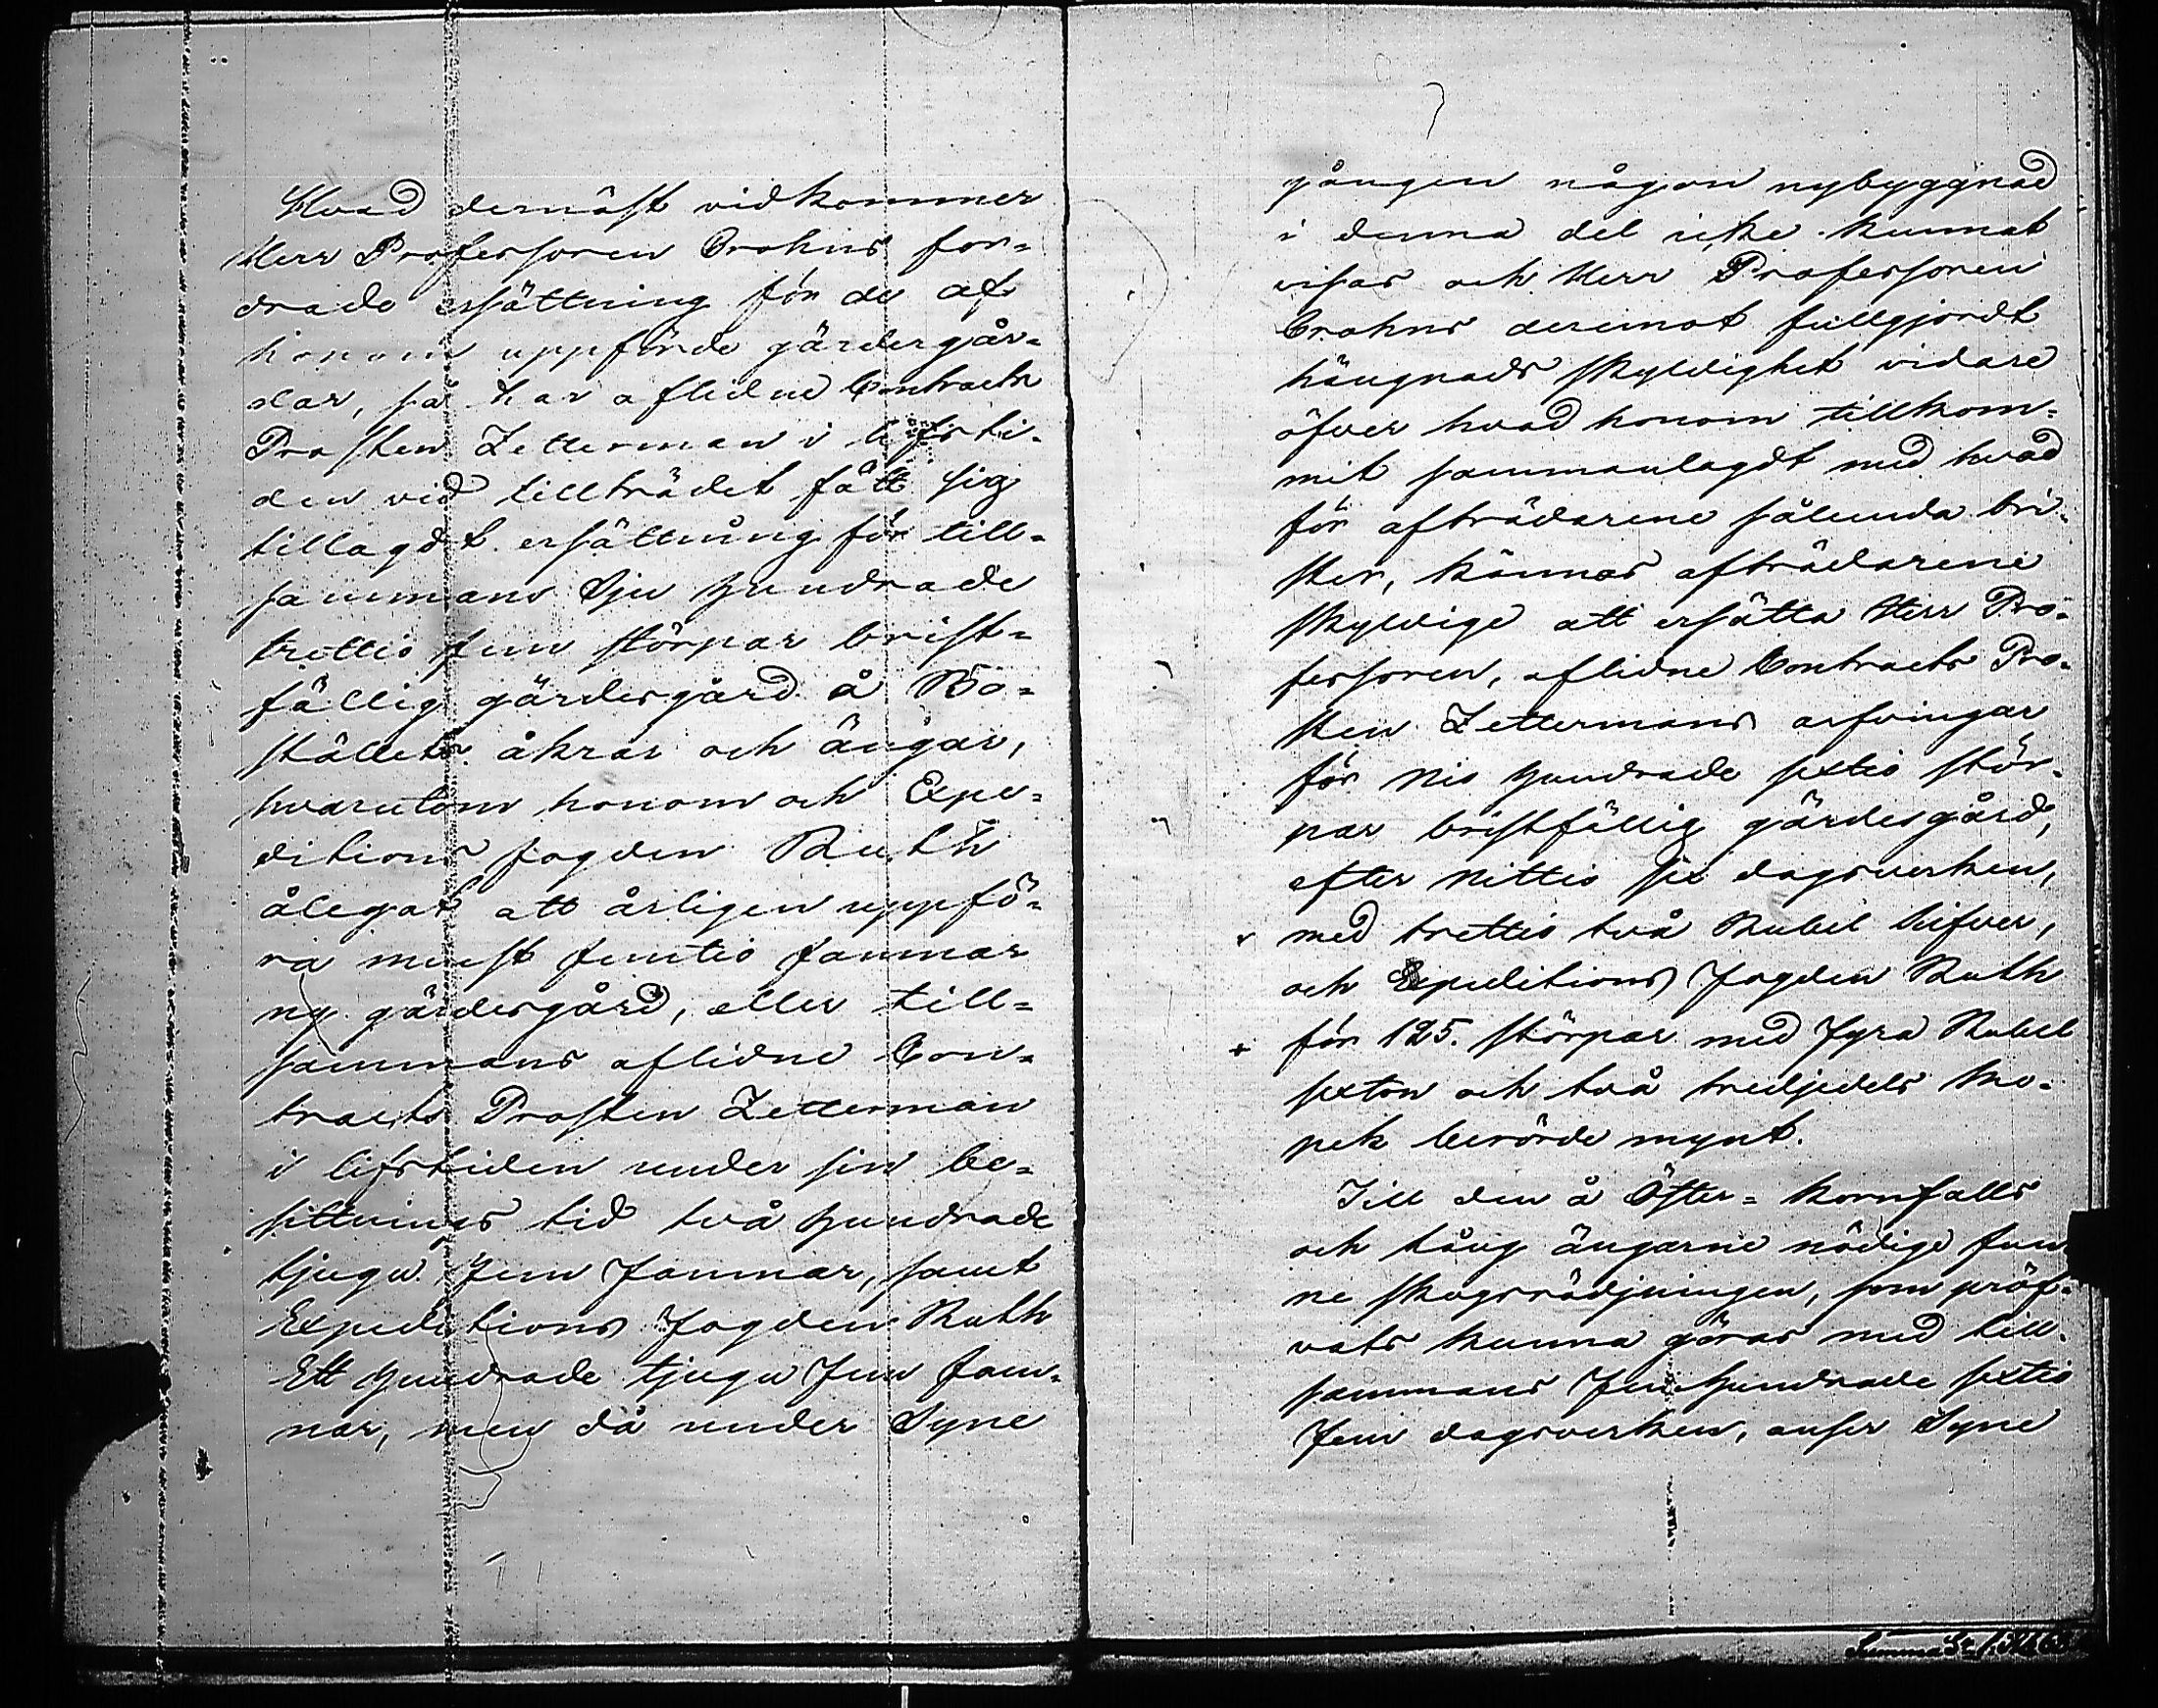 Hvad dernäst vidkommer
Herr Professoren Crohns for-
drade ersättning för de af
honom uppförde gärdesgår-
dar, så har aflidne Contracts
Prosten Zetterman i lifsti-
den vid tillträdet fått sig
tillagdt ersättning för till-
sammans Sju hundrade
trettio fem störpar brist-
fällig gärdesgård å Bo-
ställets åkrar och ängar,
hvarutom honom och Expe-
ditions fogden Ruth
ålegat att årligen uppfö-
ra minst femtio famnar
ny gärdesgård, eller till-
sammans aflidne Con-
tracts Prosten Zetterman
i lifstiden under sin be-
sittnings tid två hundrade
tjugu fem famnar, samt
Expeditions Fogden Ruth
Ett hundrade tjugu fem fam-
nar, men då under Syne
gången någon nybyggnad
i denna del icke kunnat
visas och Herr Professoren
Crohns deremot fullgjordt
hängnads skyldighet vidare
öfver hvad honom tillkom-
mit sammanlagdt med hvad
för afträdarene sålunda bri-
ster, kännas afträdarene
skyldige att ersätta Herr Pro-
fessoren, aflidne Contracts Pro-
sten Zettermans arfvingar
för Nio hundrade sextio stör-
par bristfällig gärdesgård,
efter Nittio sex dagsverken,
med trettio två Rubel Silfver,
och Expeditions Fogden Ruth
för 125. störpar med Fyra Rubel
sexton och två tredjedels Ko-
pek berörde mynt.
Till den å Öster- Kornfalls
och tång ängarne nödige fun
ne skogsrödjningen, som pröf-
vats kunna göras med till-
sammans Fem hundrade sextio
Fem dagsverken, anser Syne
Summa